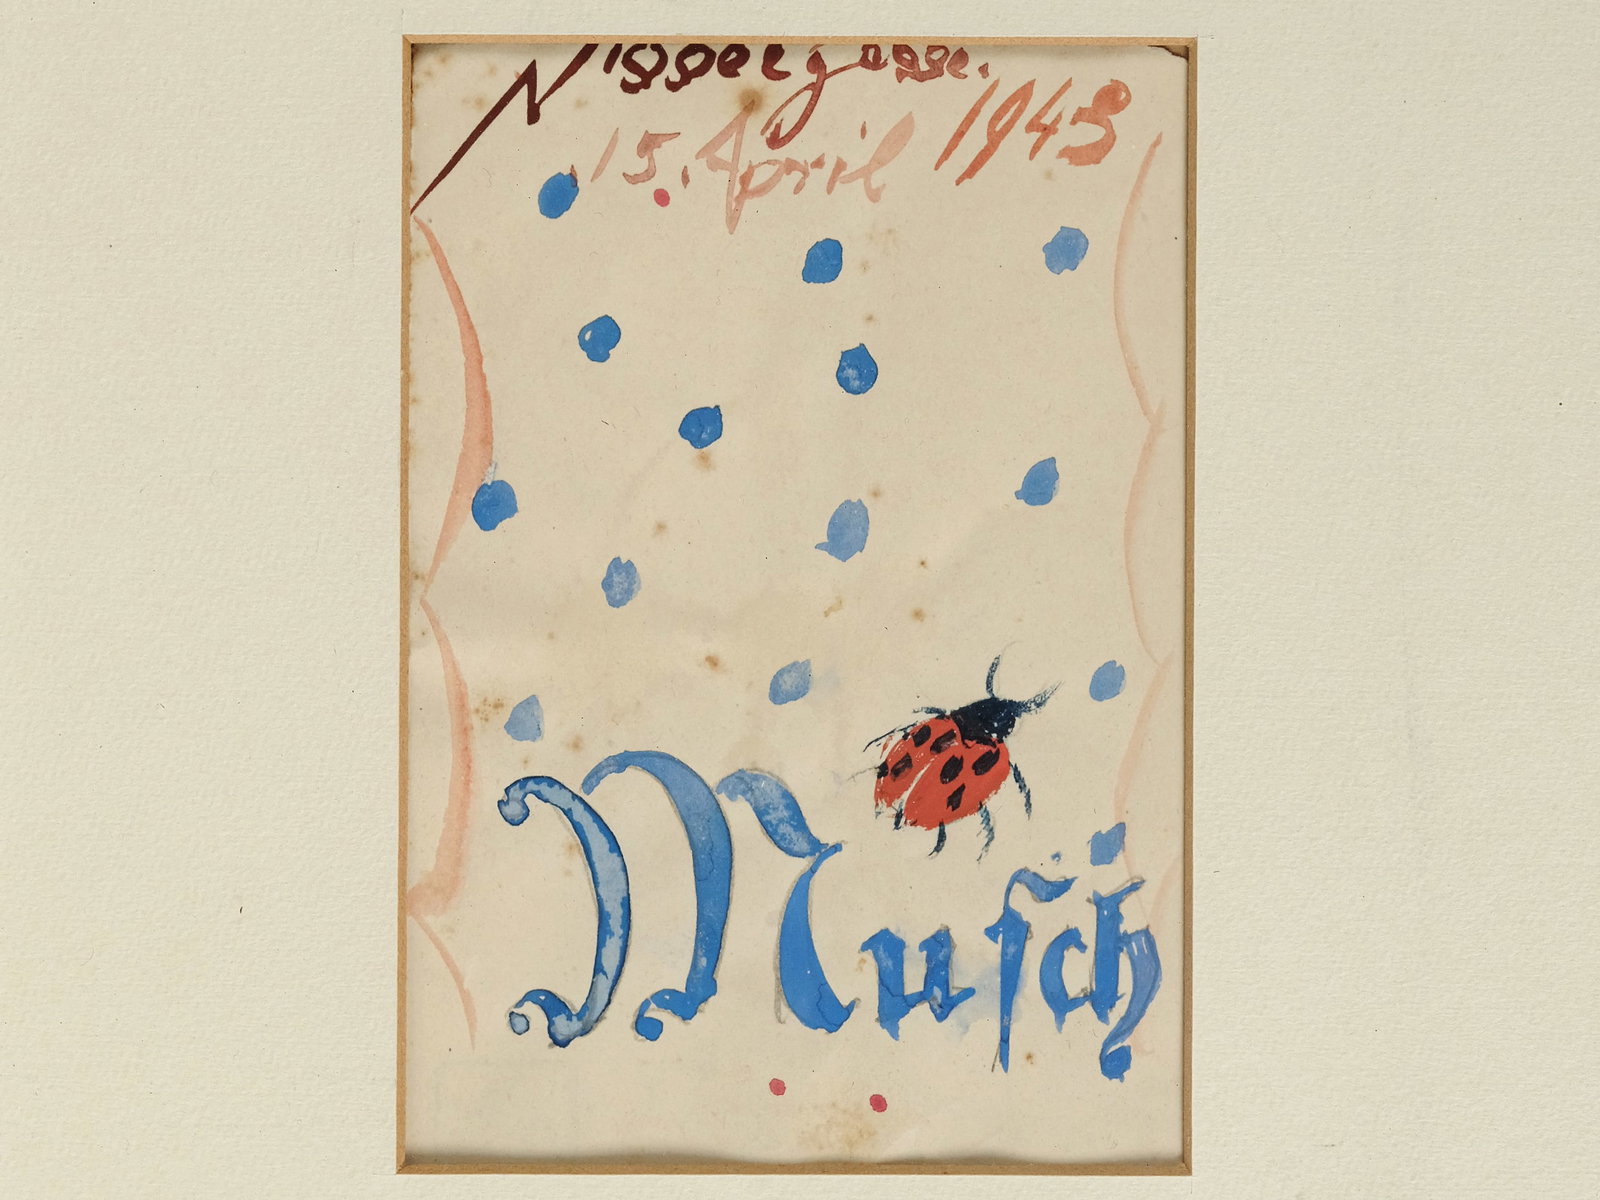 Nisselgasse.
15. April 1943
Musch